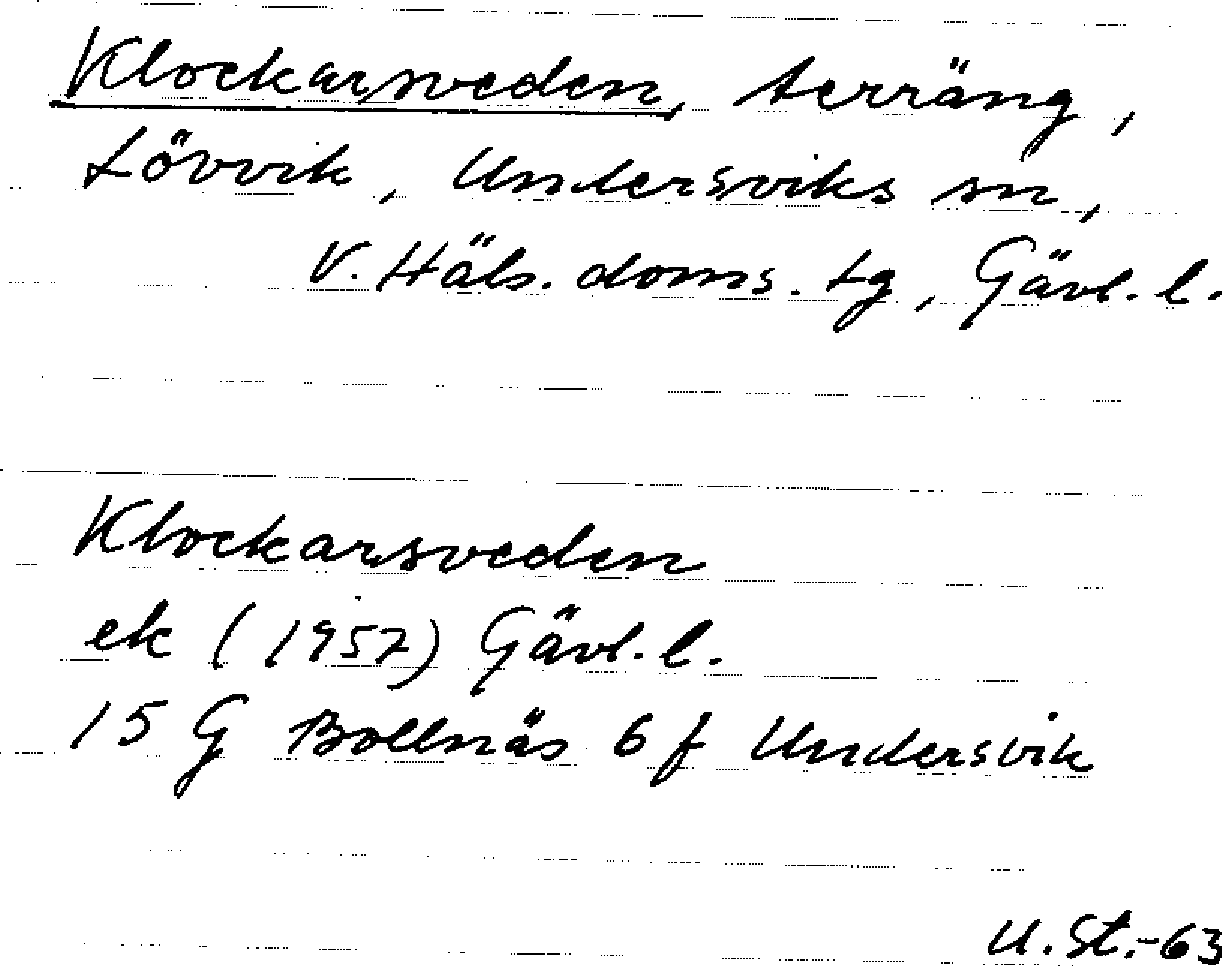 Klockarsveden, terräng,
Lövvik, Undersviks sn,
V. Häls. doms. tg, Gävl. l.
Klockarsveden
ek (1957) Gävl. l.
15 G Bollnäs 6 f Undersvik
U. St. -63